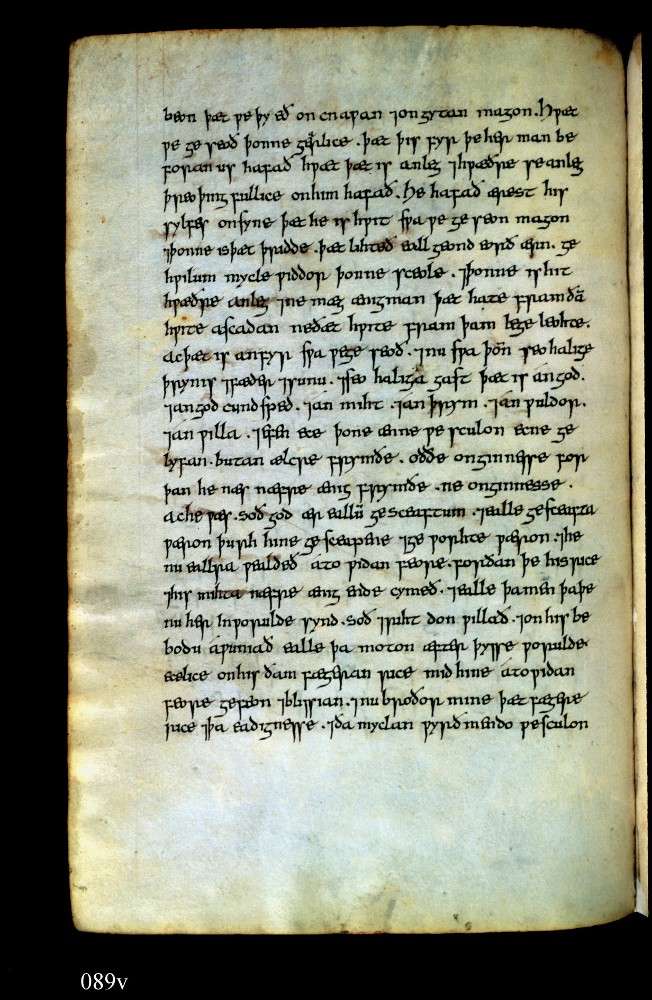 beon þæt ƿe þy eð oncnapan ⁊ongytan magon. Hƿæt
ƿe geseoð þonne gearlice. þæt þis fyr þe her man be
foran us hafað hƿæt þæt is anleg ⁊hƿæðre se anleg
þreo þing fullice onhim hafað. He hafað ærest his
sylfes onsyne þæt he is hƿit sƿa ƿe geseon magon
⁊þonne isþæt þridde. þæt lihteð eall geond eorð ærn. ge
hƿilum mycle ƿiddor þonne sceole. ⁊þonne is hit
hƿæðre anleg ⁊ne mæg ænigman þæt hate framðā
hƿite ascadan neðæt hƿite fram þam lege leohte.
Ac þæt is anfyr sƿa ƿege seoð. ⁊nu sƿa þōn seo halige
þrynis is fæder ⁊sunu. ⁊seo haliga gast þæt is án god.
⁊angod cund sped. ⁊an miht. ⁊an þrym. ⁊an ƿuldor.
⁊an ƿilla. ⁊efen ece þone æine ƿe sculon ecne ge
lyfan. butan ælcre frymðe. oððe onginnesse for
þan he næs næfre ænig frymðe. ne onginnesse.
Ac he ƿæs. soð god ær eallū gesceaftum. ⁊ealle gesceafta
ƿæron þurh hine gesceapene ⁊geƿorhte ƿæron. ⁊he
nu eallra ƿealdeð áto ƿidan feore. forðan þe his rice
⁊his mihta næfre ænig ende cymeð. ⁊ealle þamen þaþe
nu her Inƿorulde synd. soð ⁊riht don ƿillað. ⁊on his be
bodu áƿuniað ealle þa moton æfter þysse ƿorulde.
ecelice onhis ðam fægeran rice mid hine átoƿidan
feore gefeon ⁊blissian. ⁊nu broðor mine þæt fægere
rice ⁊þa eadignesse. ⁊ða myclan ƿyrð mendo ƿesculon
089v